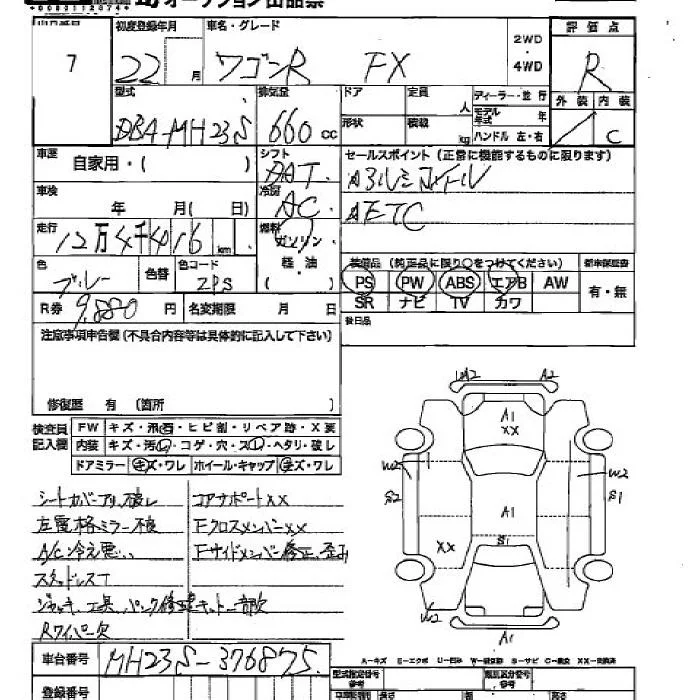 オークション出品票
7
初度登録年月
22 月
車名・グレード
ワゴンR FX
2WD
・
4WD
評価点
R
型式
DBA-MH23S
排気量
660 cc
ドア
定員
人
ディーラー・並行
モデル年式 年
形状
積載
kg
ハンドル 左・右
外装 内装
C
車歴
自家用・( )
シフト
DAT
セールスポイント(正常に機能するものに限ります)
Aアルミホイール
AETC
車検
年 月( 日)
冷房
AC
走行
12万4千416 km
燃料
ガソリン
軽・油
( )
色
ブルー
色替
色コード
ZPS
装備品(純正品に限り○をつけてください)
PS PW ABS エアB AW
SR ナビ TV カワ
有・無
R券 9,880 円
名変期限 月 日
後日品
注意事項申告欄(不具合内容等は具体的に記入して下さい)
修復歴 有 (箇所 )
検査員
記入欄
FW キズ・飛石・ヒビ割・リペア跡・X要
内装 キズ・汚れ・コゲ・穴・スレ・ヘタリ・破レ
ドアミラー キズ・ワレ ホイール・キャップ キズ・ワレ
シートカバー有, 破レ
左電格ミラー不良
A/C冷え悪い
スタッドレスT
ジャッキ, 工具, パンク修理キット一部欠
Rワイパー欠
コアサポートXX
FクロスメンバーXX
Fサイドメンバー修正, 歪み
A2 A2
A1
XX
W2 W2
S2 S1
A1
XX S1
W2
A1
車台番号 MH23S-376875
登録番号
A−キズ E−エクボ U−凹み W−補修跡 S−サビ C−腐食 XX−交換済
型式指定番号
参考
類別区分番号
参考